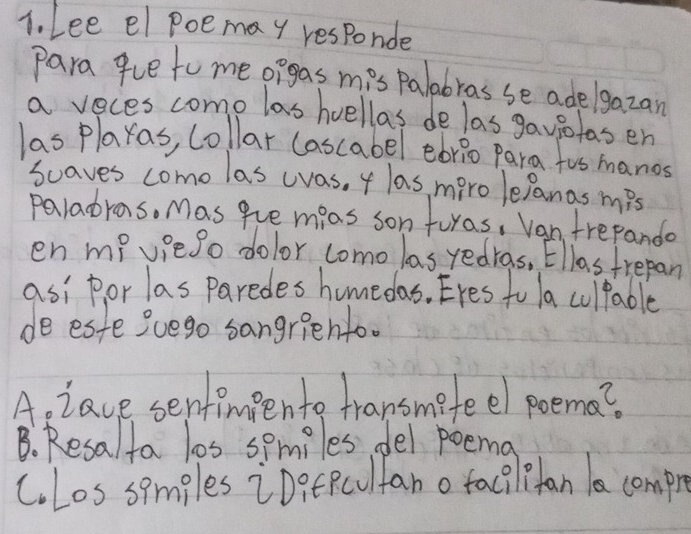 1. Lee el Poema y responde
Para que tu me oigas mis Palabras se adelgazan
a veces como las huellas de las gaviotas en
las Playas, Collar Cascabel ebrio Para tus manos
Suaves como las uvas. y las miro lejanas mis
Palabras. Mas que mias son tuyas. Van trepando
en mi viejo dolor como las yedras. Ellas trepan
así Por las Paredes humedas. Eres tu la culpable
de este juego sangriento.
A. ¿Que sentimiento transmite el poema?
B. Resalta los similes del poema
C. Los similes ¿Dificultan o facilitan la compre